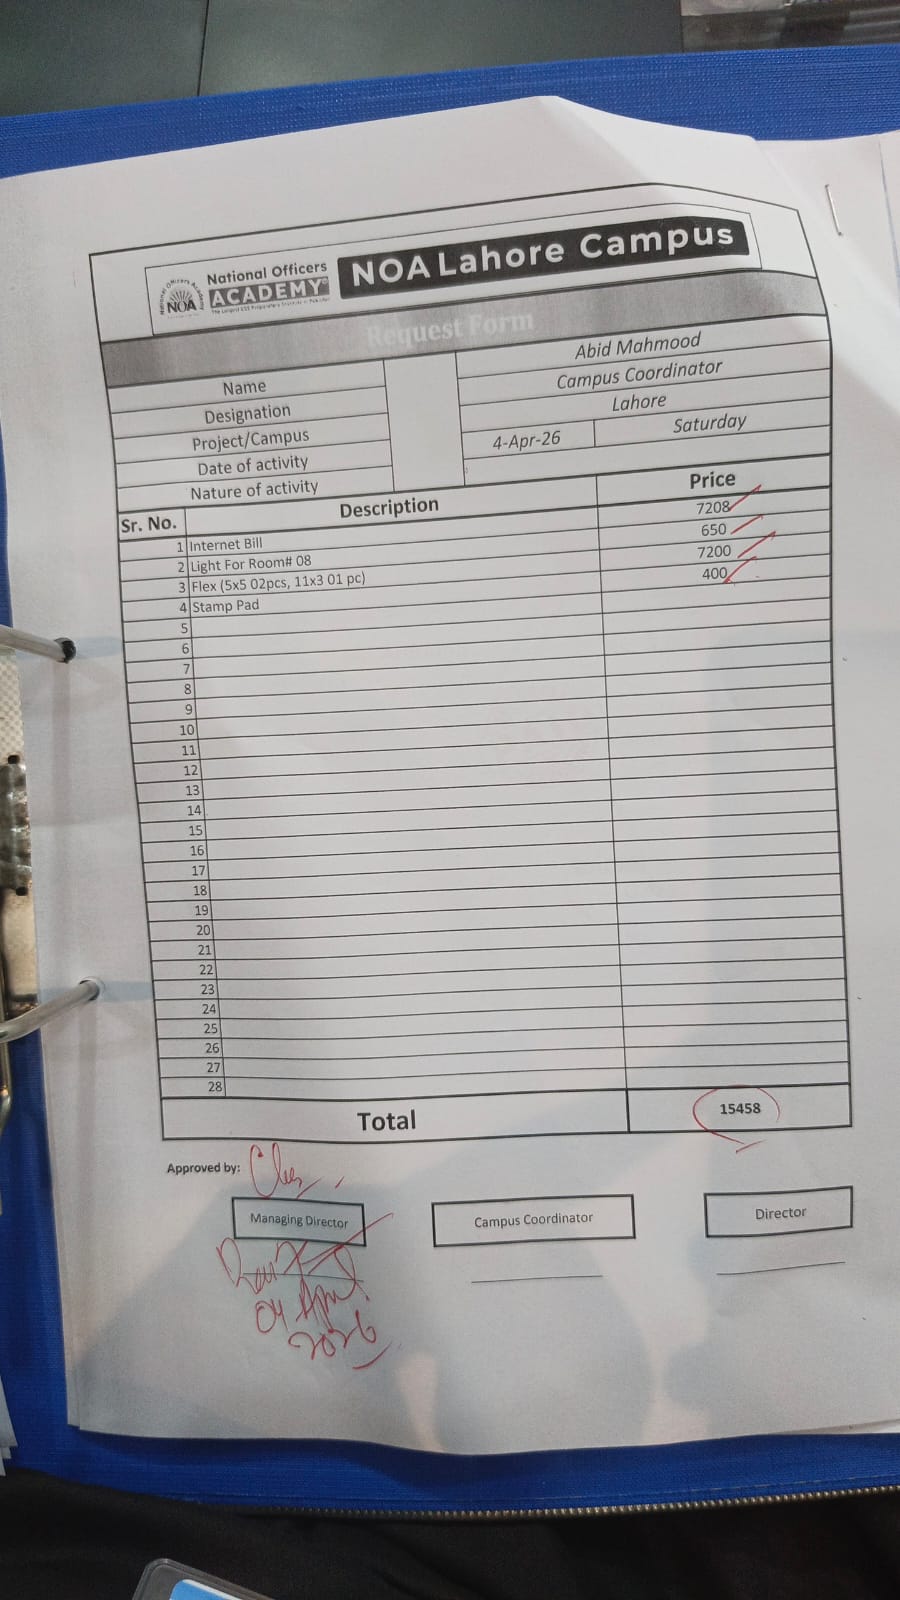 National Officers
ACADEMY
NOA
NOA Lahore Campus
Request Form
Name Abid Mahmood
Designation Campus Coordinator
Project/Campus Lahore
Date of activity 4-Apr-26 Saturday
Nature of activity
Sr. No. Description Price
1 Internet Bill 7208
2 Light For Room# 08 650
3 Flex (5x5 02pcs, 11x3 01 pc) 7200
4 Stamp Pad 400
5
6
7
8
9
10
11
12
13
14
15
16
17
18
19
20
21
22
23
24
25
26
27
28
Total 15458
Approved by:
Managing Director Campus Coordinator Director
04 April
2026